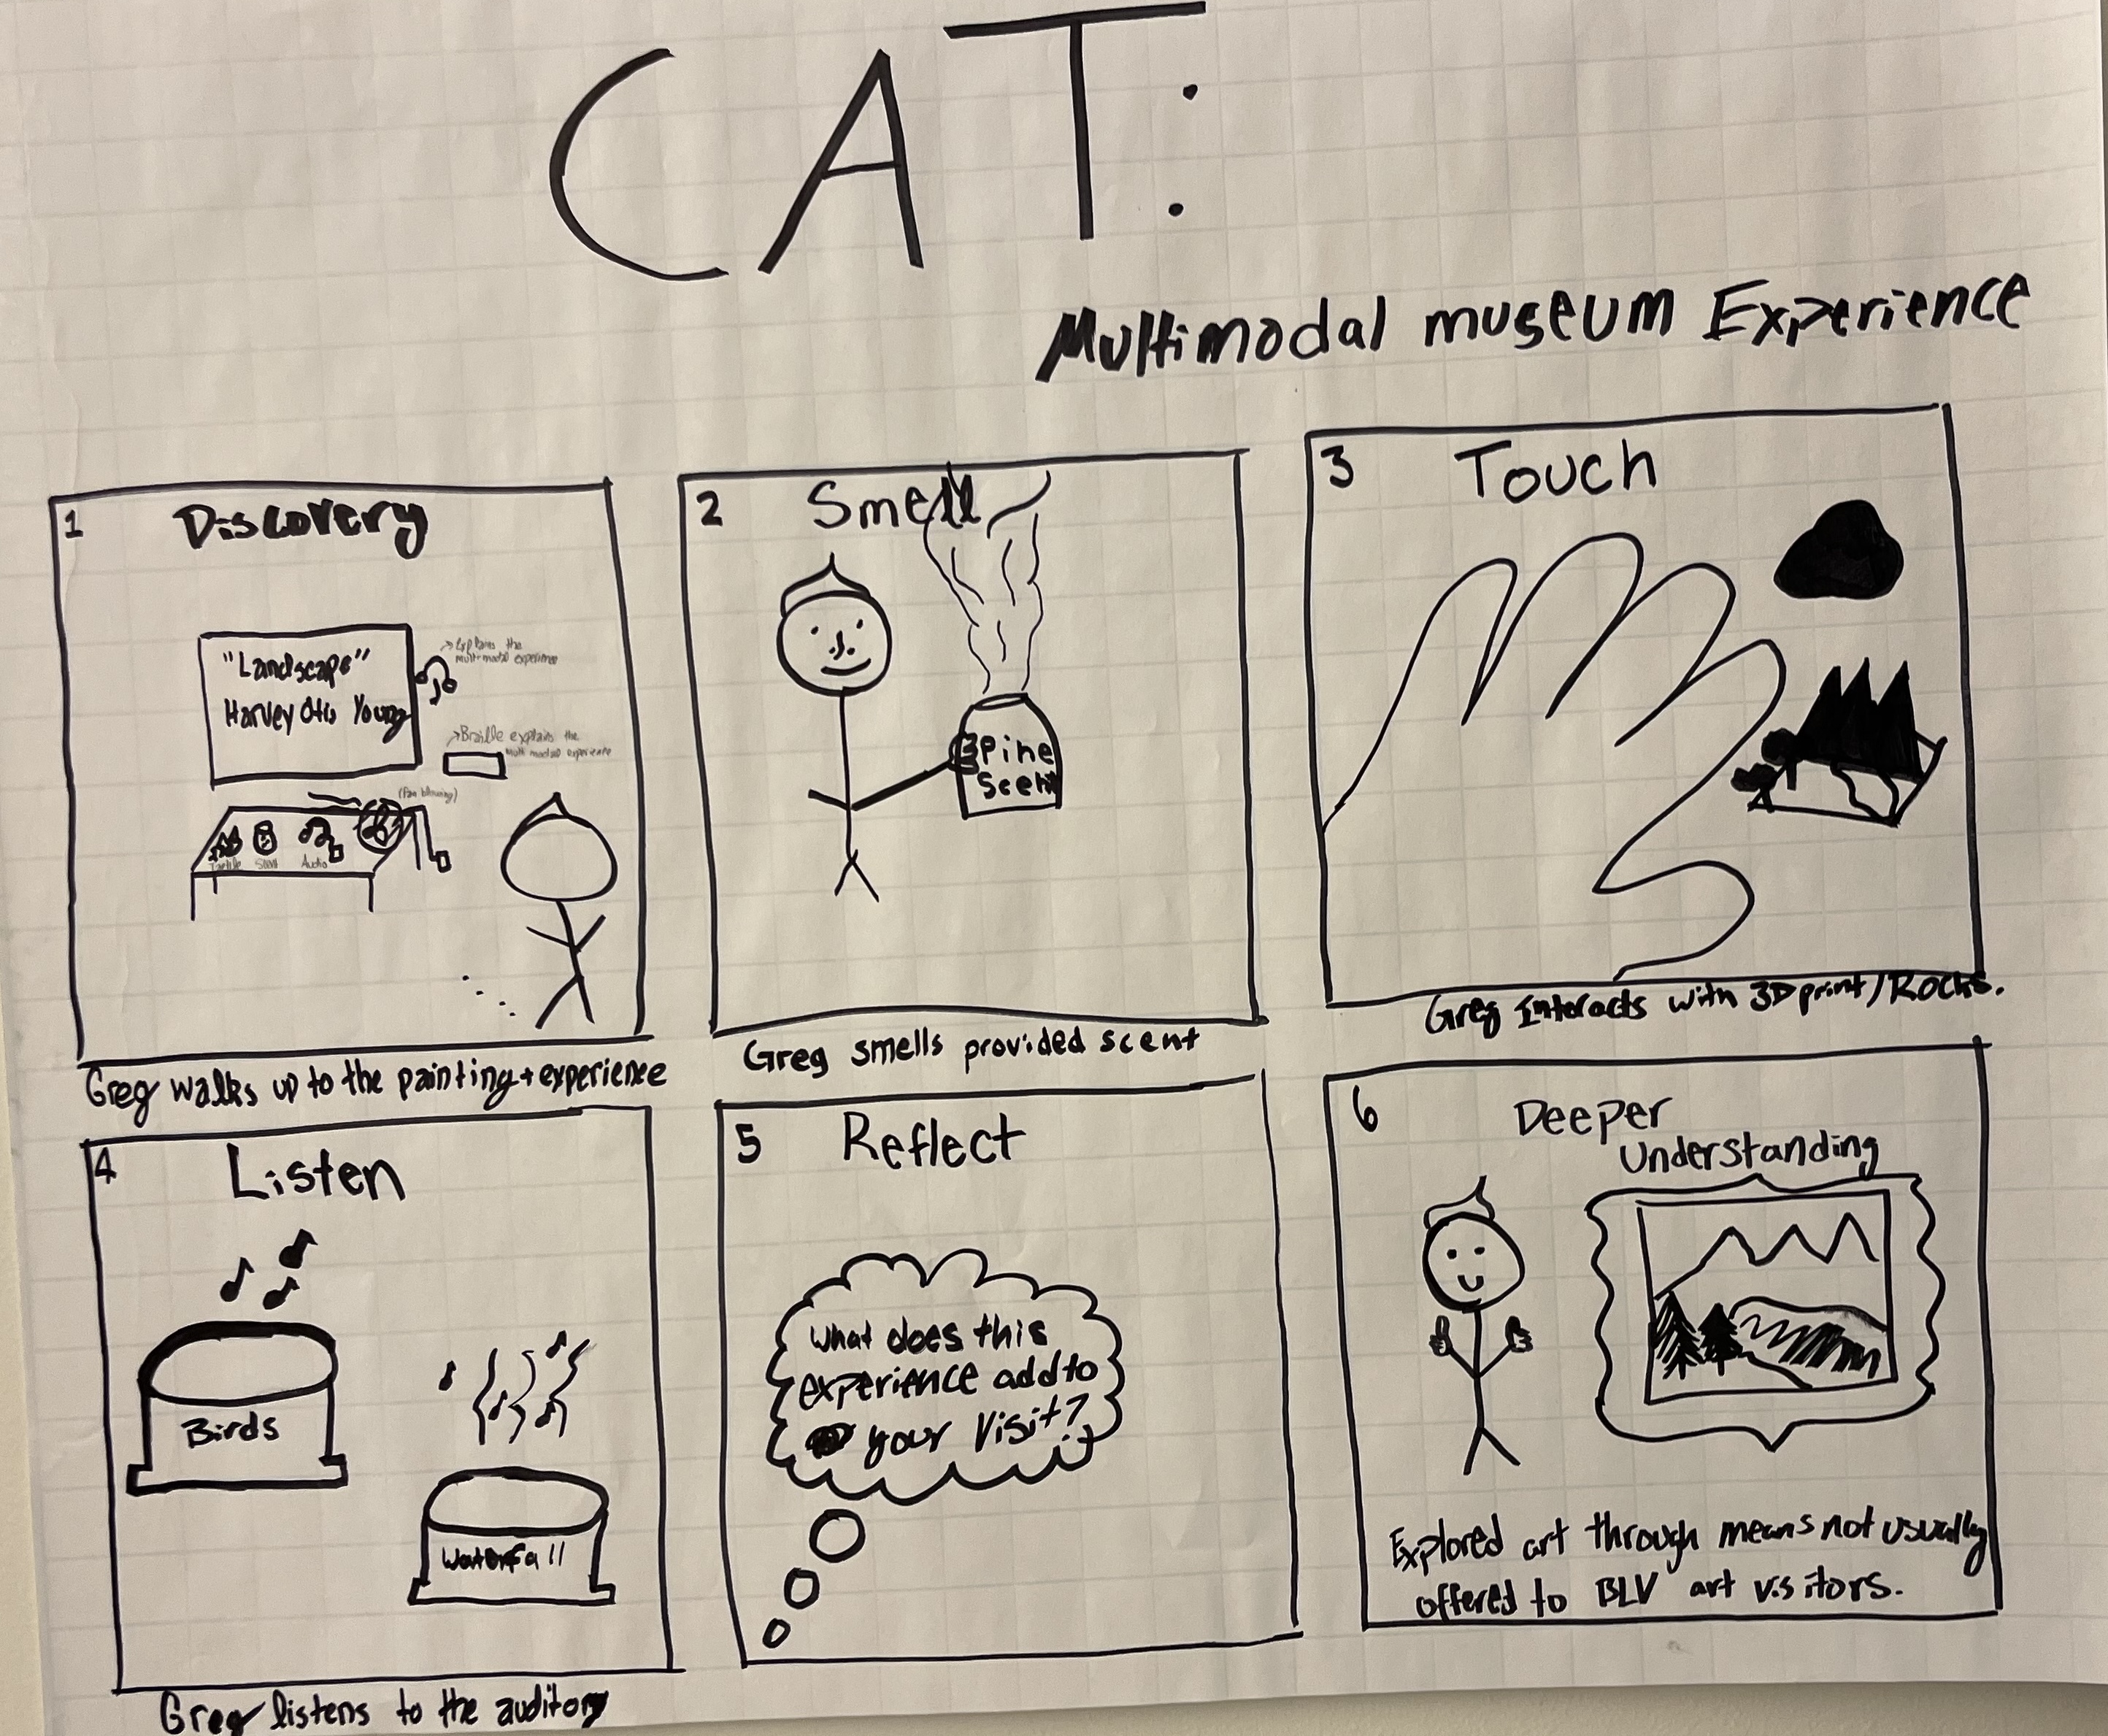 CAT:
Multimodal museum Experience
1
Discovery
"Landscape"
Harvey Otis Young
Explains the
multimodal experience
Braille explains the
multi modal experience
(Fan blowing)
Tactile
Scent
Audio
Greg walks up to the painting + experience
2
Smell
Pine
Scent
Greg smells provided scent
3
Touch
Greg Interacts with 3D print/Rocks.
4
Listen
Birds
Waterfall
Greg listens to the auditory
5
Reflect
What does this
experience add to
your Visit?
6
Deeper
Understanding
Explored art through means not usually
offered to BLV art visitors.